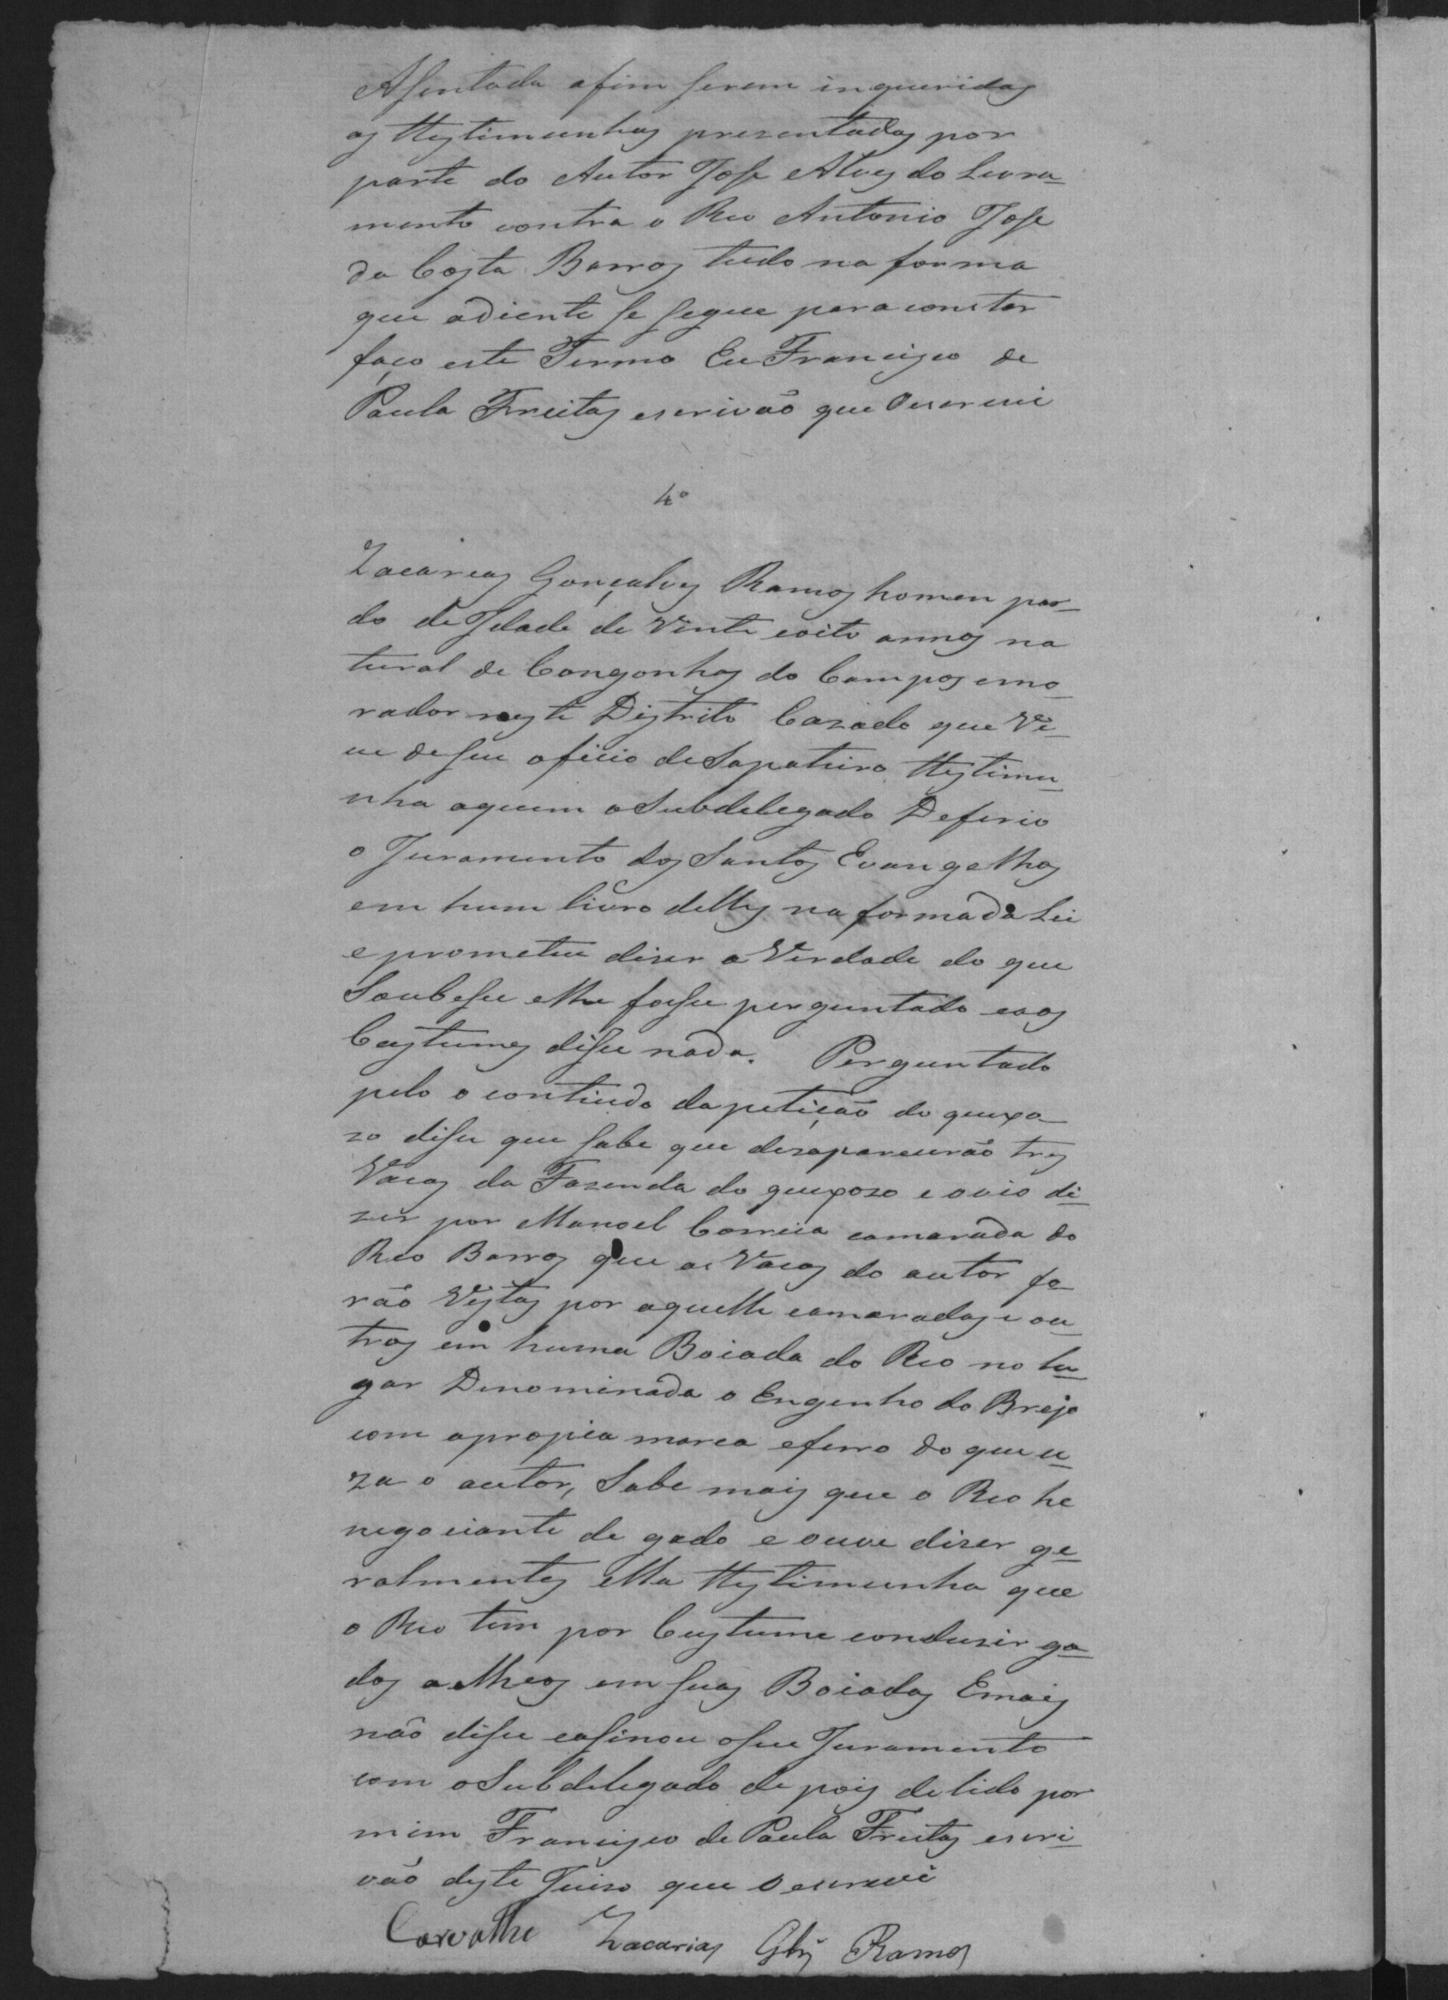 Asentada afim serem inqueridas
as ttestimunhas prezentadas por
parte do Autor Jose Alves do Livra-
mento contra o Reo Antonio Jose
da Costa Barros tudo na forma
que adiente se segue para constar
faço este Termo Eu Francisco de
Paula Freitas escrivão que oescrevi
4º
Zacareas Gonçalves Ramos homen par-
do de Idade de Vinte eoito annos na
tural de Congonhas do Campos emo-
rador neste Distrito Cazado que Ve-
ve deseu oficio deSapateiro ttestimu-
nha aquem oSubdelegado Deferio
o Juramento dos Santos Evangelhos
em hum livro delles na formada Lei
eprometeu dizer a Verdade do que
Soubesse elhe fosse perguntado eaos
Custumes disse nada. Perguntado
pelo o contiudo dapetição do queixo-
zo disse que sabe que desaparecerão tres
Vacas da Fazenda do queixozo e ovio di-
zer por Manoel Correia camarada do
Reo Barros que as Vacas do autor fo-
rão Vistas por aquelle camaradas e ou-
tros em huma Boiada do Reo no lu-
gar Denominada o Engenho do Brejo
com apropia marca eferro do que u-
za o autor, Sabe mais que o Reo he
negociante de gado e ouve dizer ge-
ralmentes ella ttestimunha que
o Reo tem por Custume conduzir ga-
dos alheos em suas Boiadas Emais
não disse easinou oseu Juramento
com oSubdelegado de pois de lido por
mim Francisco de Paula Freitas escri-
vão deste Juizo que o escrevi
Carvalho Zacarias Glz Ramos